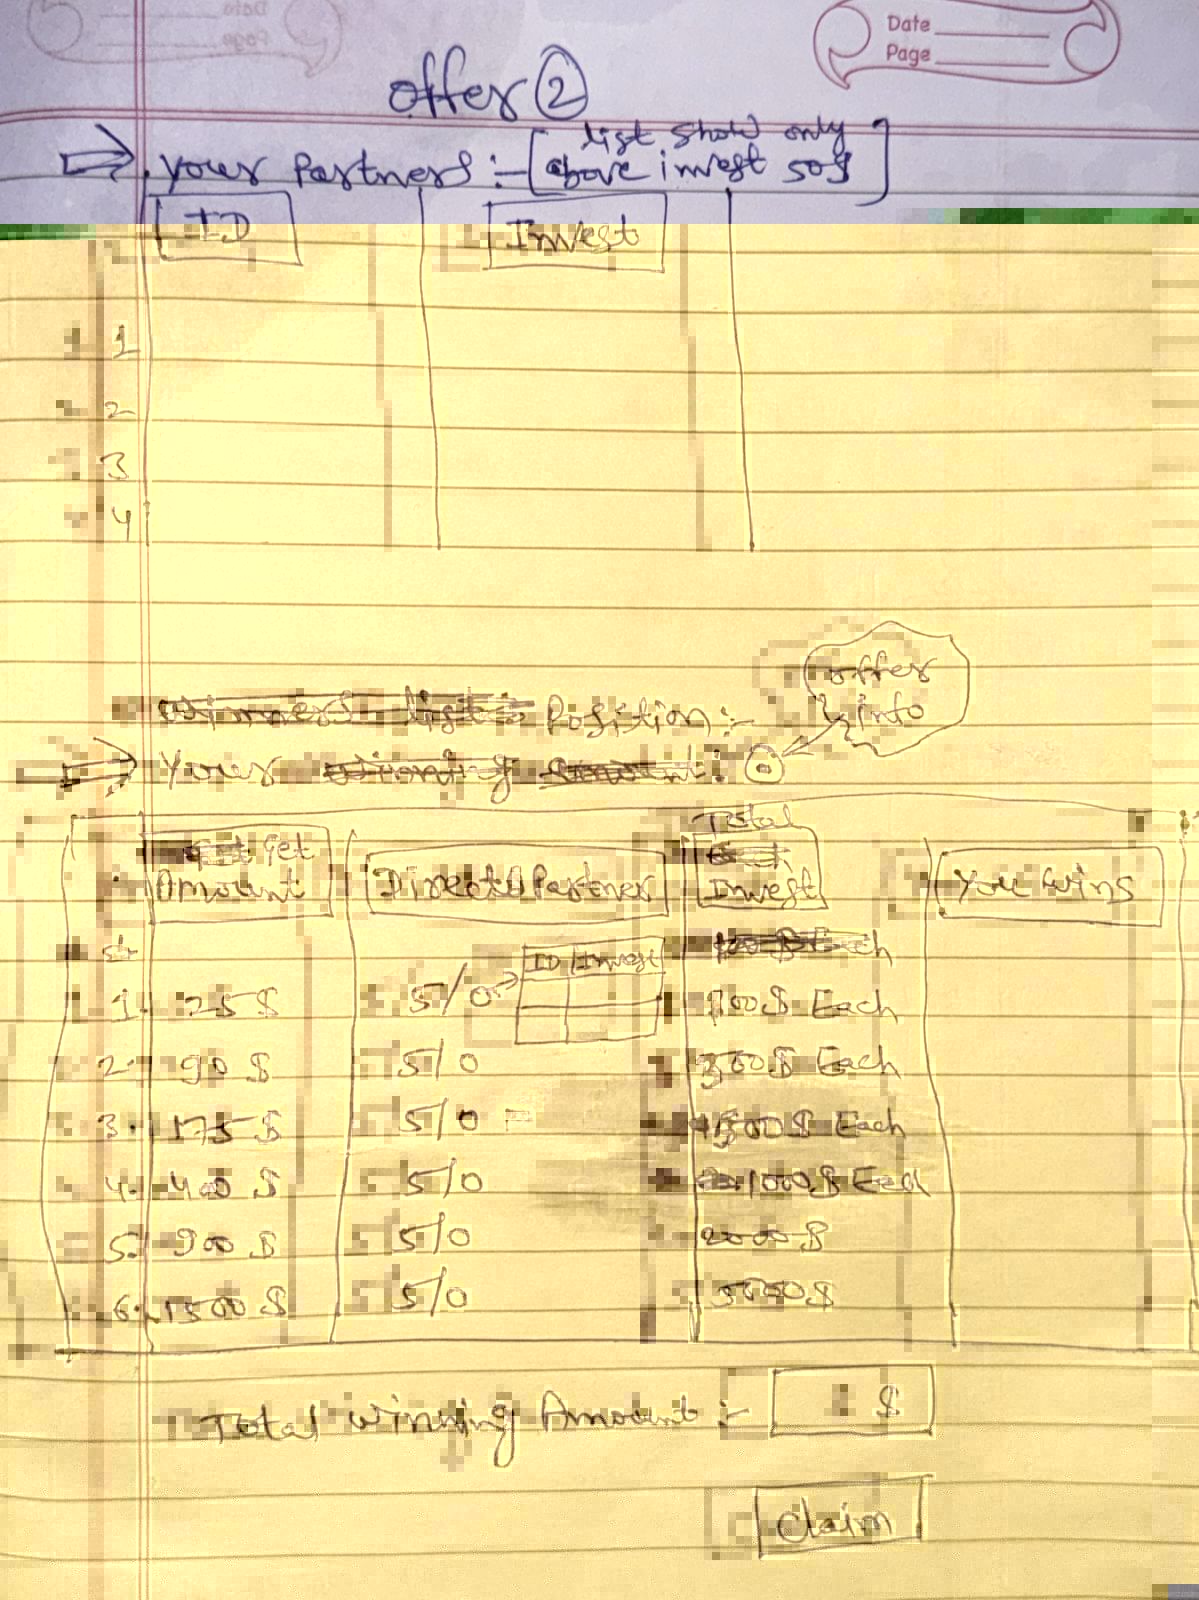 Date
Page
offer 2
Your Partners :- [list show only
above invest 50$]
ID Invest
1
2
3
4
Position :-
offer
info
Your
get
Amount Direct Partner Total
Invest You wins
ID Invest
1. 25 $ 5/0 100$ Each
2. 90 $ 5/0 300$ Each
3. 175 $ 5/0 500$ Each
4. 400 $ 5/0 1000$ Each
5. 900 $ 5/0 2000 $
6. 1500 $ 5/0
Total winning Amount :- $
Claim